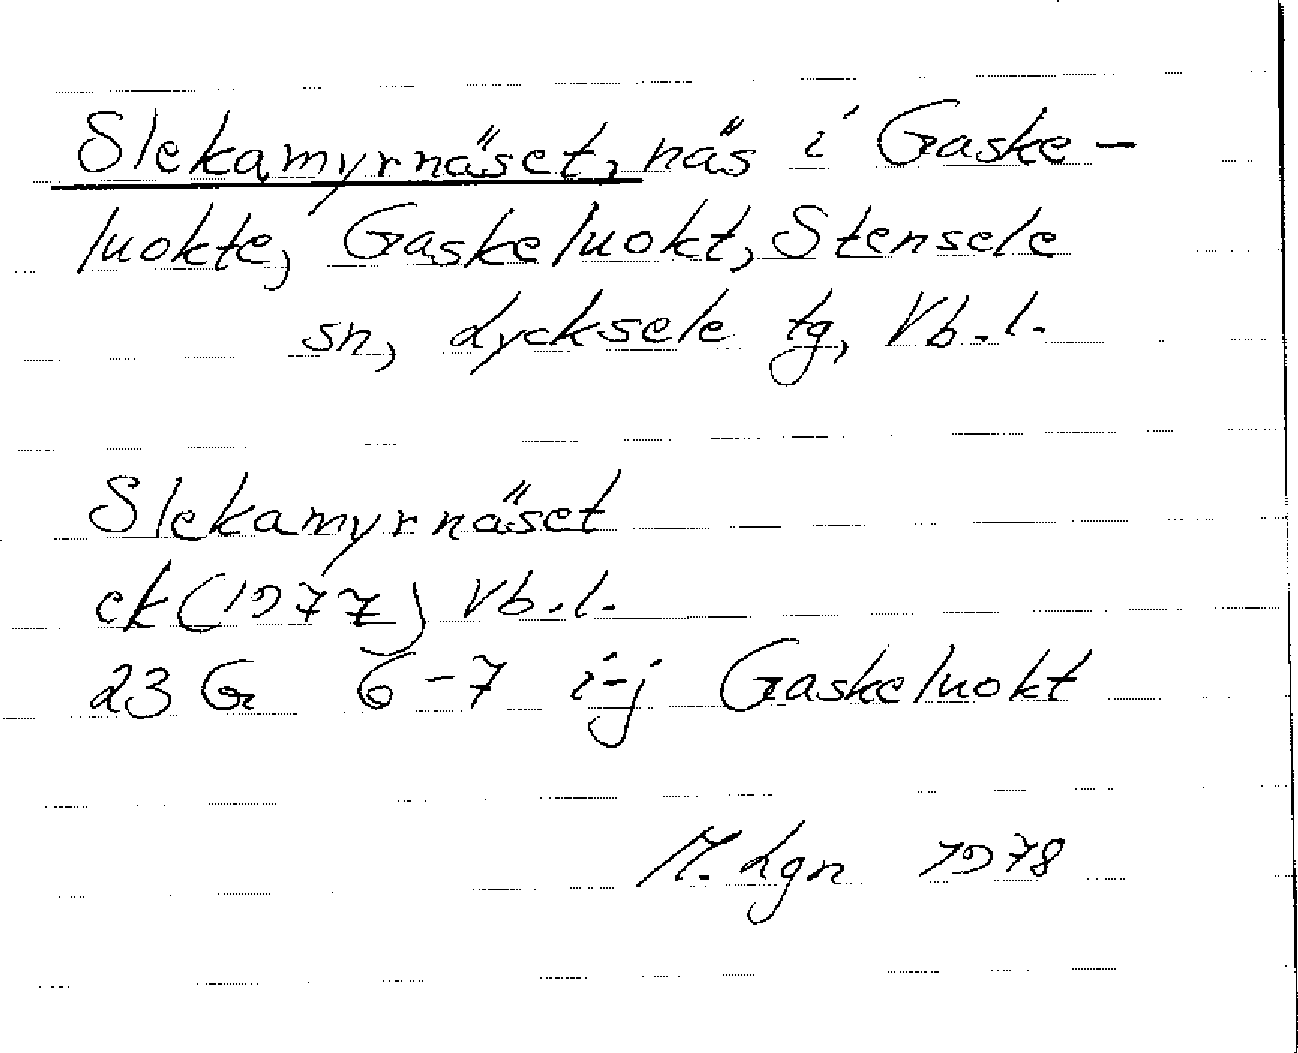 Slekamyrnäset, näs i Gaske-
luokte, Gaskeluokt, Stensele
sn, Lycksele tg, Vb.l.
Slekamyrnäset
ek (1977) Vb.l.
23 G 6-7 i-j Gaskeluokt
M. Lgn 1978